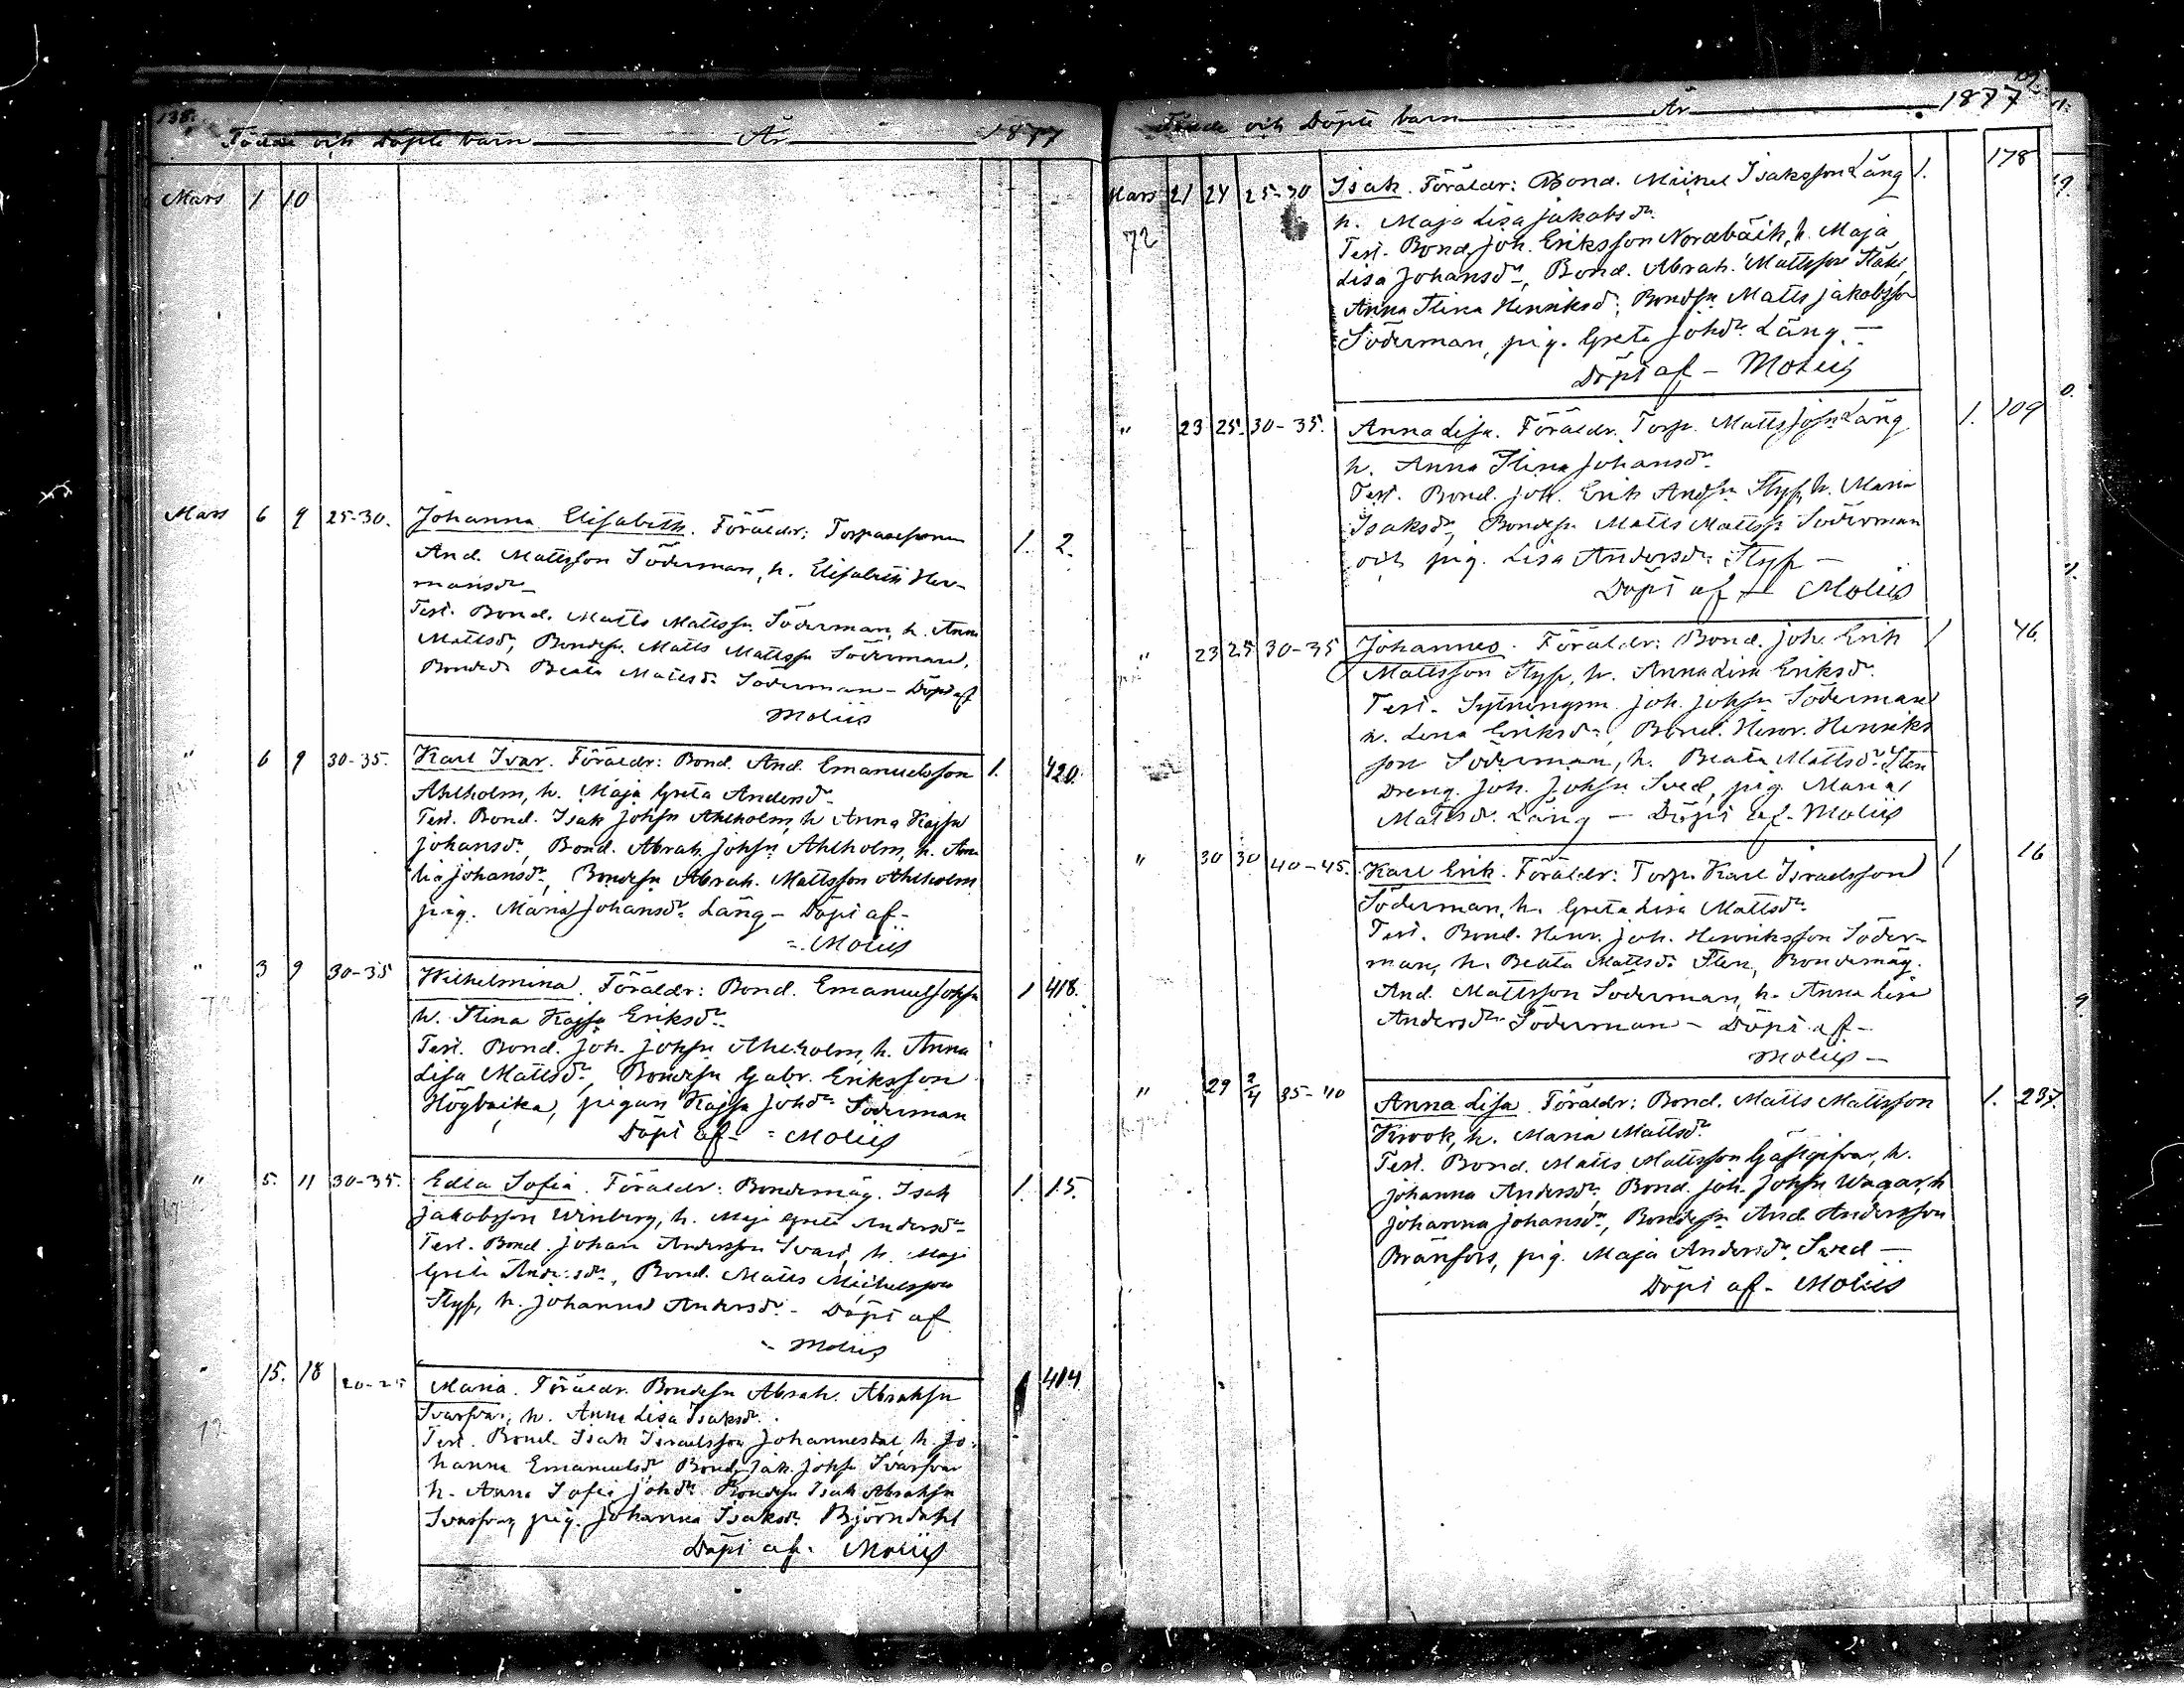 138.
Födde och Döpte barn År 1877
Mars 1 10
Mars 6 9 25-30. Johanna Elisabeth. Föräldr: Torparesonen 1. 2.
And. Mattsson Söderman, h. Elisabeth Her-
mansdr
Test. Bond. Matts Mattssn Söderman, h. Anna
Mattsdr, Bondesn. Matts Mattssn Söderman,
Bonded. Beata Mattsdr Söderman - Döpt af
Moliis
" 6 9 30-35. Karl Ivar. Föräldr: Bond. And. Emanuelsson 1. 420.
Ahlholm, h. Maja Greta Andersdr
Test. Bond. Isak Johsn Ahlholm, h Anna Kajsa
Johansdr, Bond. Abrah. Johsn Ahlholm, h. Ama
lia Johansdr, Bondesn Abrah. Mattsson Ahlholm
pig. Maria Johansdr Läng - Döpt af -
Moliis
" 3 9 30-35 Wilhelmina. Föräldr: Bond. Emanuel Johsn 1 418.
h. Stina Kajsa Eriksdr
Test. Bond. Joh. Johsn Ahlholm, h. Anna
Lisa Mattsdr, Bondesn Gabr. Eriksson
Högbacka, pigan Kajsa Johdr Söderman
Döpt af - Moliis
" 5. 11 30-35. Edla Sofia. Föräldr: Bondemåg. Isak 1. 15.
Jakobsson Winberg, h. Maja Greta Andersdr
Test. Bond. Johan Andersson Svars, h. Maja
Greta Andersdr, Bond. Matts Michelsson
Styf, h. Johanna Andersdr - Döpt af
- Moliis
" 15. 18 20-25 Maria. Föräldr. Bondesn Abrah. Abrahsn 1 414.
Svarfvar, h. Anna Lisa Isaksdr.
Test. Bond. Isak Israelsson Johannesdal, h. Jo-
hanna Emanuelsdr Bond. Jak. Johsn Svarfvar
h. Anna Sofia Johdr Bondesn Isak Abrahsn
Svarfvar, pig. Johanna Isaksdr Björndahl
Döpt af. Moliis
Födde och Döpte barn År 1877
Mars 21 24 25-30 Isak. Föräldr: Bond. Michel Isaksson Läng 1. 178
72
h. Maja Lisa Jakobsdr
Test. Bond. Joh. Eriksson Nordbäck, h. Maja
Lisa Johansdr, Bond. Abrah. Mattsson
Anna Stina Henriksdr, Bondsn Matts Jakobsson
Söderman, pig. Greta Johdr Läng -
Döpt af - Moliis
" 23 25. 30-35. Anna Lisa. Föräldr. Torp. Matts Johsn Läng 1. 109
h. Anna Stina Johansdr
Test. Bond. Joh. Erik Andsn Styf, h. Maria
Isaksdr, Bondesn Matts Mattssn Söderman
och pig. Lisa Andersdr Styf -
Döpt af - Moliis
" 23 25 30-35 Johannes. Föräldr: Bond. Joh. Erik 1 46.
Mattsson Styf, h. Anna Lisa Eriksdr
Test. Sytningsm. Joh. Johsn Söderman
h. Lena Eriksdr, Bond. Henr. Henriks
son Söderman, h. Beata Mattsdr Sten
Dreng. Joh. Johsn Sved, pig. Maria
Mattsdr Läng - Döpt af - Moliis
" 30 30 40-45. Karl Erik. Föräldr: Torp. Karl Israelsson 1 16
Söderman, h. Greta Lisa Mattsdr
Test. Bond. Henr. Joh. Henriksson Söder-
man, h. Beata Mattsdr Sten, Bondemåg.
And. Mattsson Söderman, h. Anna Lisa
Andersdr Söderman - Döpt af -
Moliis -
" 29 2/4 35-40 Anna Lisa. Föräldr: Bond. Matts Mattsson 1. 237.
Krook, h. Maria Mattsdr
Test. Bond. Matts Mattsson Gästgifvar, h.
Johanna Andersdr, Bond. Joh. Johsn Wagar, h
Johanna Johansdr, Bondesn And. Andersson
Bränfors, pig. Maja Andersdr Sved -
Döpt af - Moliis